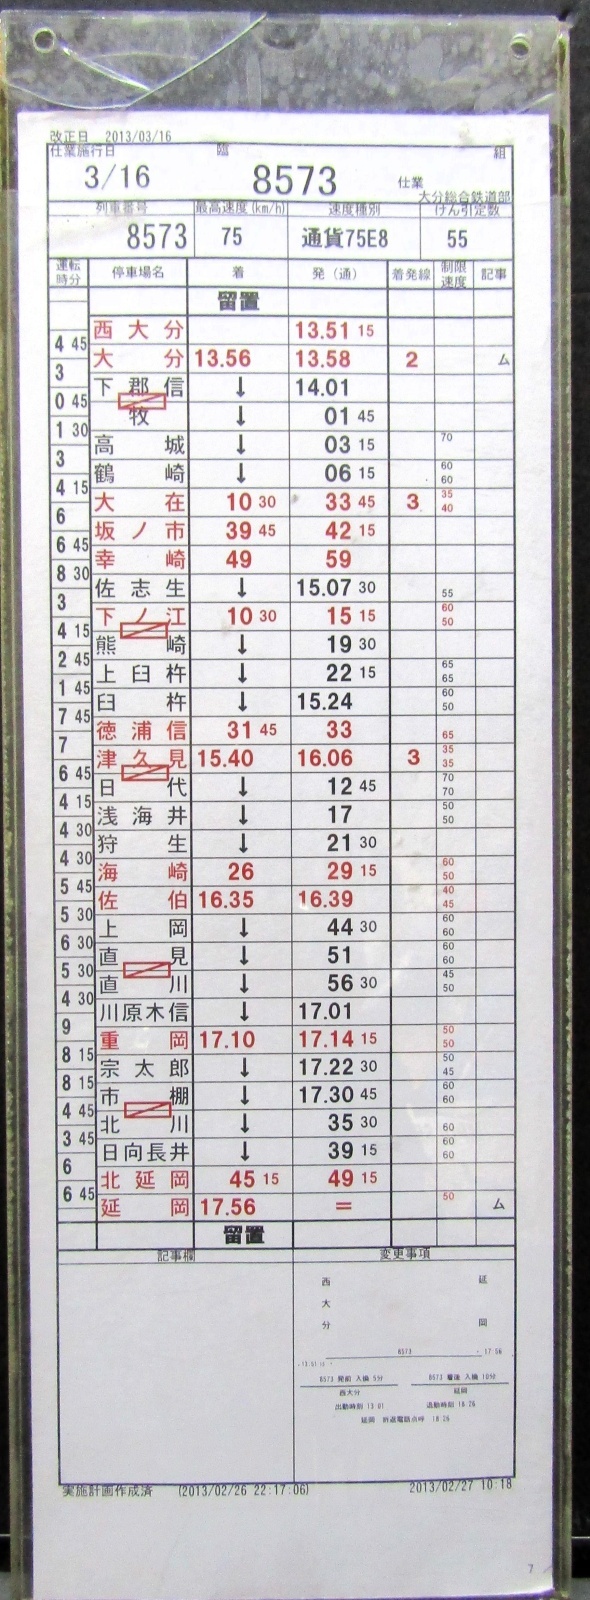 改正日 2013/03/16
仕業施行日 臨 組
3/16 8573 仕業
大分総合鉄道部
列車番号 最高速度(km/h) 速度種別 けん引定数
8573 75 通貨75E8 55
運転時分 停車場名 着 発(通) 着発線 制限速度 記事
留置
西大分 13.51 15
4 45
大分 13.56 13.58 2 ム
3
下郡信 ↓ 14.01
0 45
牧 ↓ 01 45
1 30
高城 ↓ 03 15 70
3
鶴崎 ↓ 06 15 60 60
4 15
大在 10 30 33 45 3 35 40
6
坂ノ市 39 45 42 15
6 45
幸崎 49 59
8 30
佐志生 ↓ 15.07 30 55
3
下ノ江 10 30 15 15 60 50
4 15
熊崎 ↓ 19 30
2 45
上臼杵 ↓ 22 15 65 65
1 45
臼杵 ↓ 15.24 60 50
7 45
徳浦信 31 45 33 65
7
津久見 15.40 16.06 3 35 35
6 45
日代 ↓ 12 45 70 70
4 15
浅海井 ↓ 17 50 50
4 30
狩生 ↓ 21 30
4 30
海崎 26 29 15 60 50
5 45
佐伯 16.35 16.39 40 45
5 30
上岡 ↓ 44 30 60 60
6 30
直見 ↓ 51 60 60
5 30
直川 ↓ 56 30 45 50
4 30
川原木信 ↓ 17.01
9
重岡 17.10 17.14 15 50 50
8 15
宗太郎 ↓ 17.22 30 50 45
8 15
市棚 ↓ 17.30 45 60 60
4 45
北川 ↓ 35 30 60
3 45
日向長井 ↓ 39 15 60 60
6
北延岡 45 15 49 15
6 45
延岡 17.56 = 50 ム
留置
記事欄 変更事項
西大分 延岡
8573 17 56
13.51 15
8573 発前 入換 5分 8573 着後 入換 10分
西大分 延岡
出勤時刻 13 01 退勤時刻 18 26
延岡 折返電話点呼 18 26
実施計画作成済 (2013/02/26 22:17:06) 2013/02/27 10:18
7